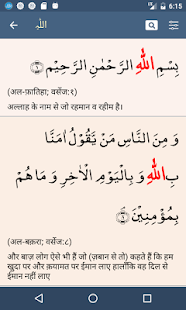 6:15
اللّٰہِ
بِسْمِ اللّٰهِ الرَّحْمٰنِ الرَّحِيْمِ ۝١
(अल-फ़ातिहा; वर्सेज:१)
अल्लाह के नाम से जो रहमान व रहीम है।
وَ مِنَ النَّاسِ مَنْ يَّقُوْلُ اٰمَنَّا
بِاللّٰهِ وَ بِالْيَوْمِ الْاٰخِرِ وَ مَا هُمْ
بِمُؤْمِنِيْنَ ۝٨
(अल-बक़रा; वर्सेज:८)
और बाज़ लोग ऐसे भी हैं जो (ज़बान से तो) कहते हैं कि हम
खुदा पर और क़यामत पर ईमान लाए हालाँकि वह दिल से
ईमान नहीं लाए